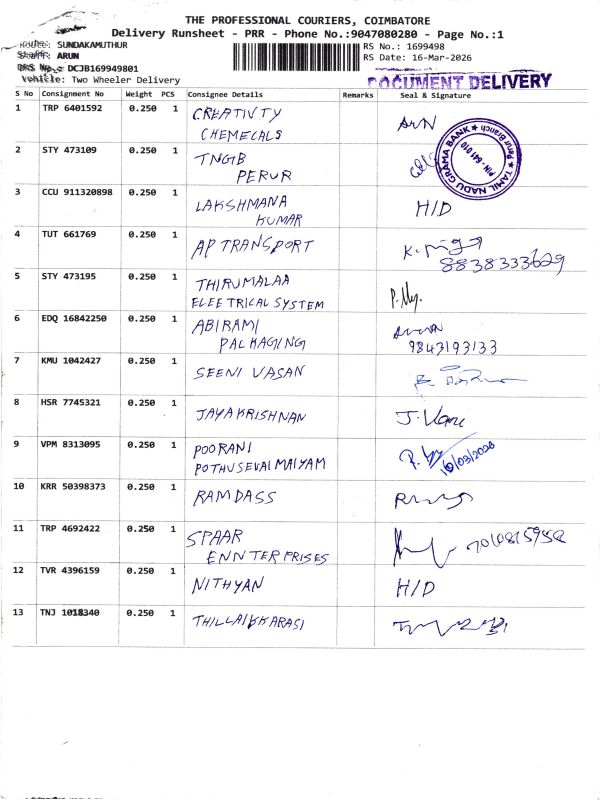 THE PROFESSIONAL COURIERS, COIMBATORE
Delivery Runsheet - PRR - Phone No.:9047080280 - Page No.:1
Route: SUNDAKAMUTHUR
Staff: ARUN
DRS No.: DCJB169949801
Vehicle: Two Wheeler Delivery
RS No.: 1699498
RS Date: 16-Mar-2026
DOCUMENT DELIVERY
S No Consignment No Weight PCS Consignee Details Remarks Seal & Signature
1 TRP 6401592 0.250 1 CREATIVTY CHEMECALS ArN
TAMIL NADU GRAMA BANK
PIN - 641 010
2 STY 473109 0.250 1 TNGB PERUR
3 CCU 911320898 0.250 1 LAKSHMANA KUMAR H/D
4 TUT 661769 0.250 1 AP TRANSPORT
8838333629
5 STY 473195 0.250 1 THIRUMALAA ELEETRICAL SYSTEM
6 EDQ 16842250 0.250 1 ABIRAMI PALKAGING
9843193133
7 KMU 1042427 0.250 1 SEENI VASAN
8 HSR 7745321 0.250 1 JAYAKRISHNAN
9 VPM 8313095 0.250 1 POORANI POTHUSEVAIMAIYAM
16/03/2026
10 KRR 50398373 0.250 1 RAMDASS
11 TRP 4692422 0.250 1 SPAAR ENNTERPRISES 7010815958
12 TVR 4396159 0.250 1 NITHYAN H/D
13 TNJ 1018340 0.250 1 THILLAIKKARASI